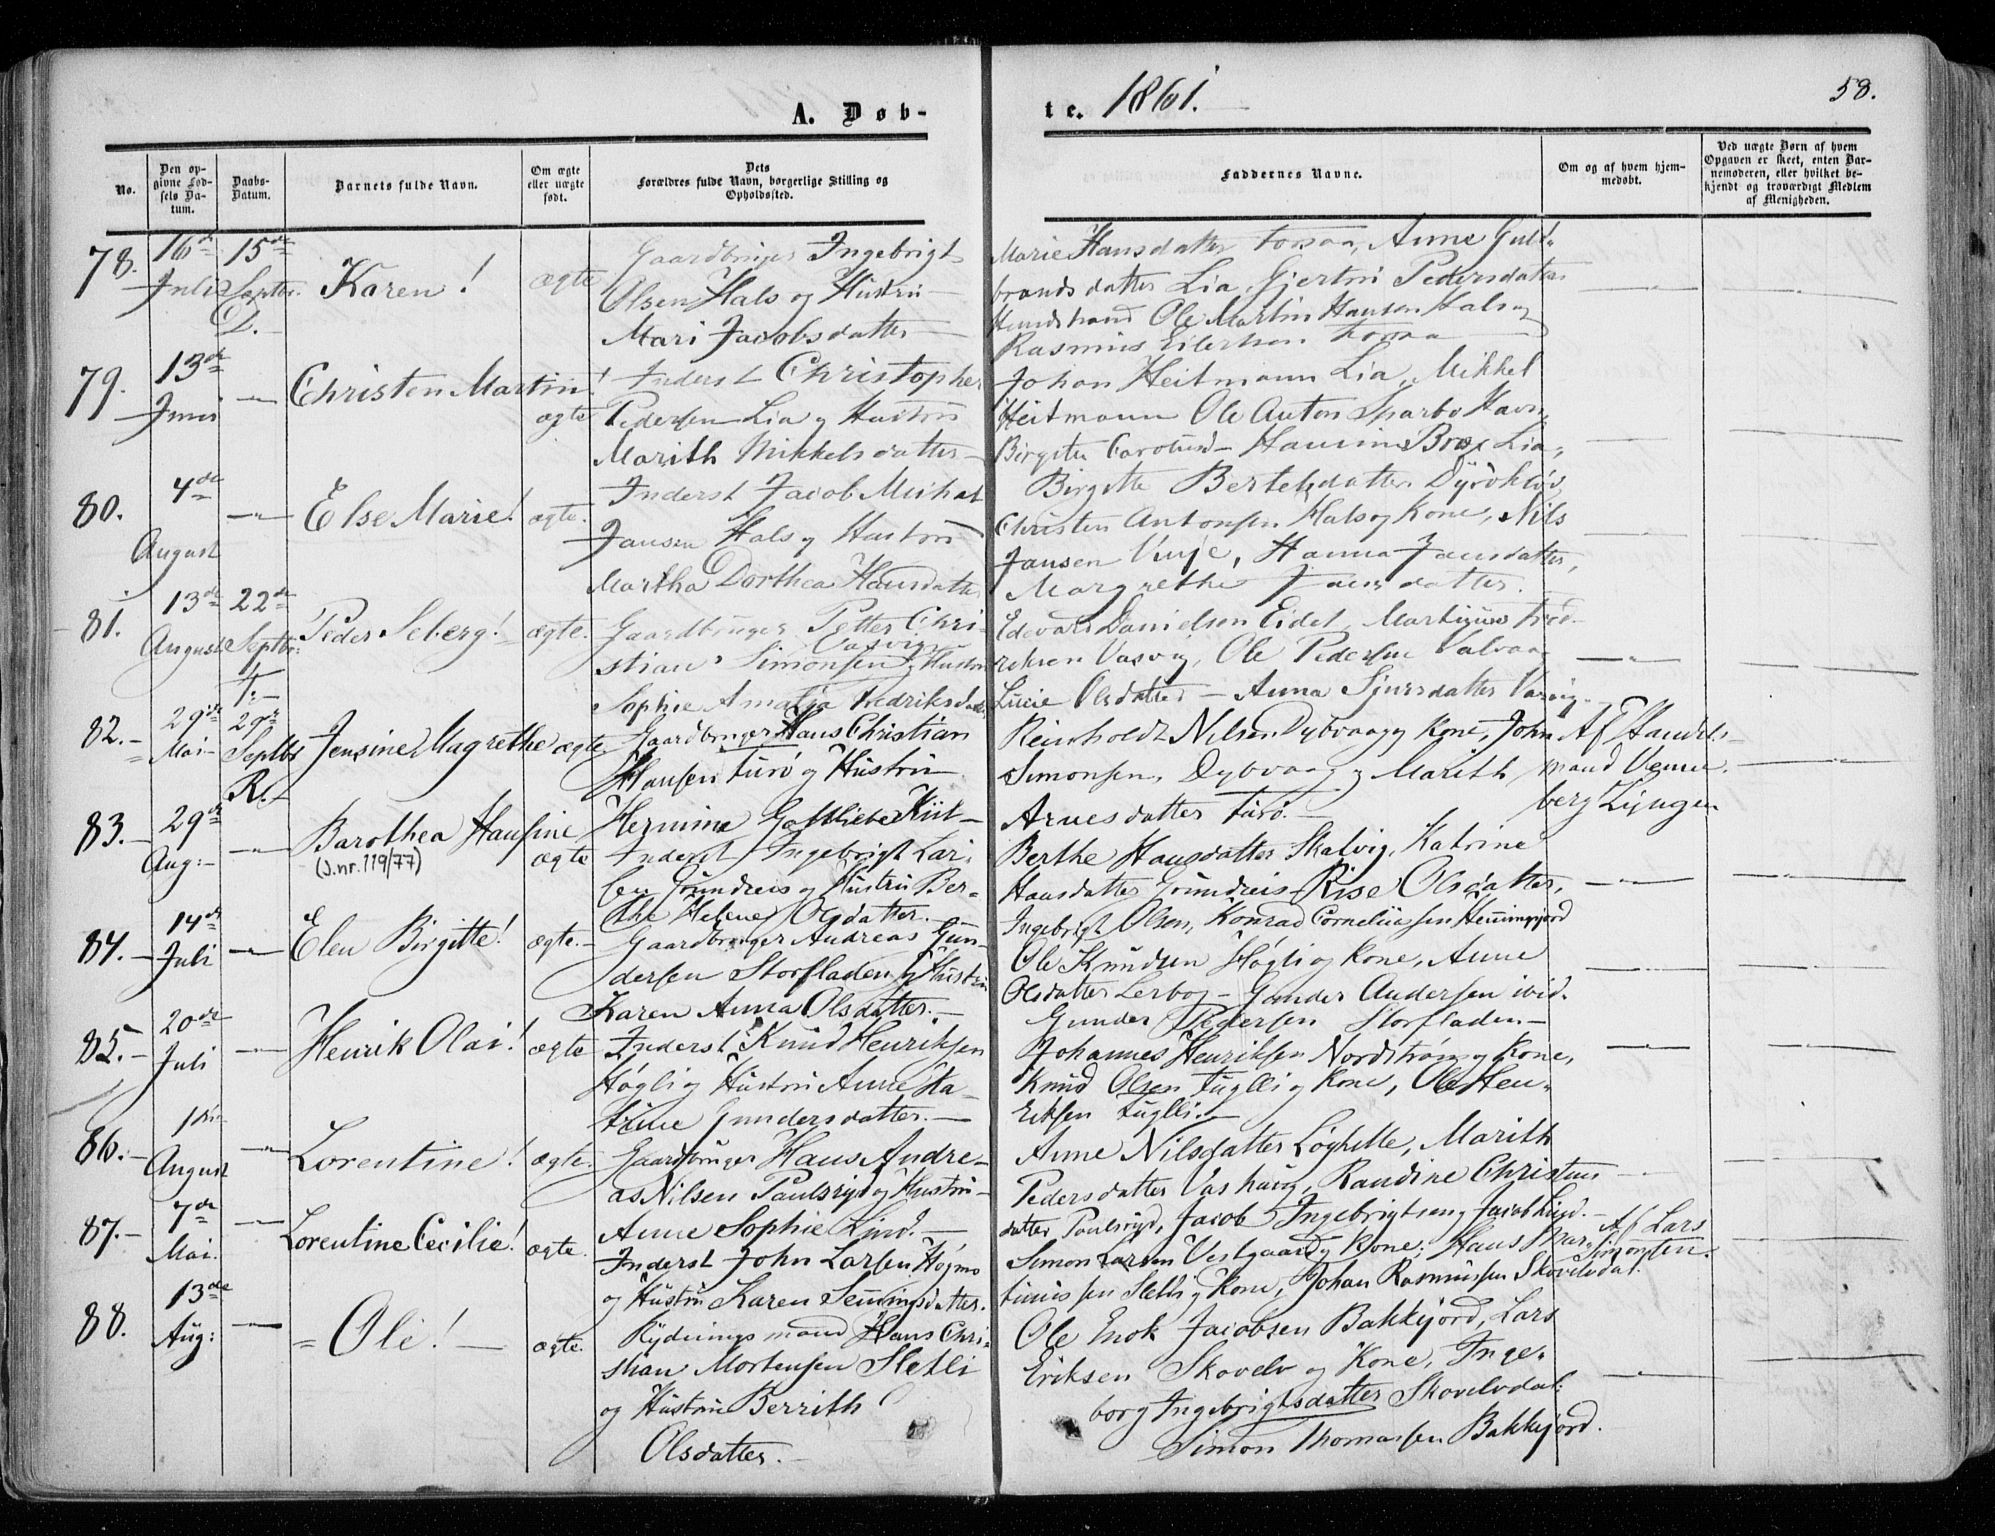 A. Døb-
te. 1861.
58.
No.
Den op-
givne Fød-
sels Da-
tum.
Daabs-
Datum.
Barnets fulde Navn.
Om ægte
eller uægte
født.
Dets
Forældres fulde Navn, borgerlige Stilling og
Opholdssted.
Faddernes Navne.
Om og af hvem hjem-
medøbt.
Ved uægte Børn af hvem
Opgaven er skeet, enten Bar-
nemoderen, eller hvilket be-
kjendt og troværdigt Medlem
af Menigheden.
78. 16de Juli 15de Septbr. Karen! ægte
Gaardbruger Ingebrigt
Olsen Hals og Hustru
Mari Jacobsdatter
Marie Hansdatter, Anne Guld-
brandsdatter Lia, Pedersdatter
Ole Martin Hansen Hals og
Rasmus Eilertsen
79. 13de Juni -"- Christen Martin! ægte
Inderst Christopher
Pedersen Lia og Hustru
Marith Mikkelsdatter
Johan Heitmann Lia, Mikkel
Heitmann Ole Anton Sparbo Havn,
Birgitte Lia,
80. 4de August -"- Else Marie! ægte.
Inderst Jacob Michal
Jansen Hals og Hustru
Martha Dorthea Hansdatter
Birgitte Bertelsdatter
Christen Antonsen Hals og Kone, Nils
Jansen Vinje, Hanna Jansdatter,
Margrethe Jansdatter.
81. 13de August 22de Septbr. Peder Seberg! ægte.
Gaardbruger Petter Chri-
stian Simonsen Vasvig og Hustru
Sophie Amalia Fredriksdatter
Edevard Danielsen Eidet, Fred-
riksen Vasvig, Ole Pedersen Valvaag
Lucie Olsdatter - Anna Sjursdatter Vasvig
82. - 29de Mai - 29de Septbr R. - Jensine Magrethe ægte
Gaardbruger Hans Christian
Hansen Turø og Hustru
Hermine Gottliebe Kiil -
Reinholdt Nilsen Dybvaag og Kone, John
Simonsen, Dybvaag og Marith
Arnesdatter Turø. -
Af Handels-
mand Venne-
berg Lyngen
83. - 29de Aug: - -"- Barothea Hansine ægte
(J.nr. 119/77)
Inderst Ingebrigt Lar-
sen Grundreis og Hustru Ber-
the Helene Olsdatter. -
Berthe Hansdatter Skalvig, Katrine
Hansdatter Grundreis - Rise Olsdatter,
Ingebrigt Olsen, Konrad Corneliussen
84. - 14de Juli -"- Elen Birgitte! ægte. -
Gaardbruger Andreas Gun-
dersen Storfladen og Hustru
Karen Anna Olsdatter. -
Ole Knudsen Høgli og Kone, Anne
Olsdatter - Gunder Andersen ibid.
Gunder Pedersen Storfladen -
85. - 20de Juli -"- Henrik Olai! ægte
Inderst Knud Henriksen
Høgli og Hustru Anne Ka-
trine Gundersdatter. -
Johannes Henriksen Nordstrøm og Kone,
Knud Olsen Fuglli og Kone, Ole Hen-
riksen Fuglli. -
86. - 1ste August -"- Lorentine! ægte.
Gaardbruger Hans Andre-
as Nilsen Paulsryd og Hustru -
Anne Sophie Lind. -
Anne Nilsdatter Løghette, Marith
Pedersdatter Vashaug, Randine Christens
datter Paulsryd, Jacob Ingebrigtsen og Jacob Lind. -
87. - 7de Mai. -"- Lorentine Cecilie! ægte.
Inderst John Larsen Høgmo
og Hustru Karen Henningsdatter.
Simon Larsen Vestgaard og Kone, Hans Mar-
tinussen Sletli og Kone, Johan Rasmussen Skovelvdal.
Af Lars
Simonsen.
88. 13de Aug: -"- Ole! - ægte.
Rydningsmand Hans Chri-
stian Mortensen Sletli
og Hustru Berrith
Olsdatter. -
Ole Enok Jacobsen Bakkejord, Lars
Eriksen Skovelv og Kone, Inge-
borg Ingebrigtsdatter Skovelvdal:
Simon Thomassen Bakkejord.